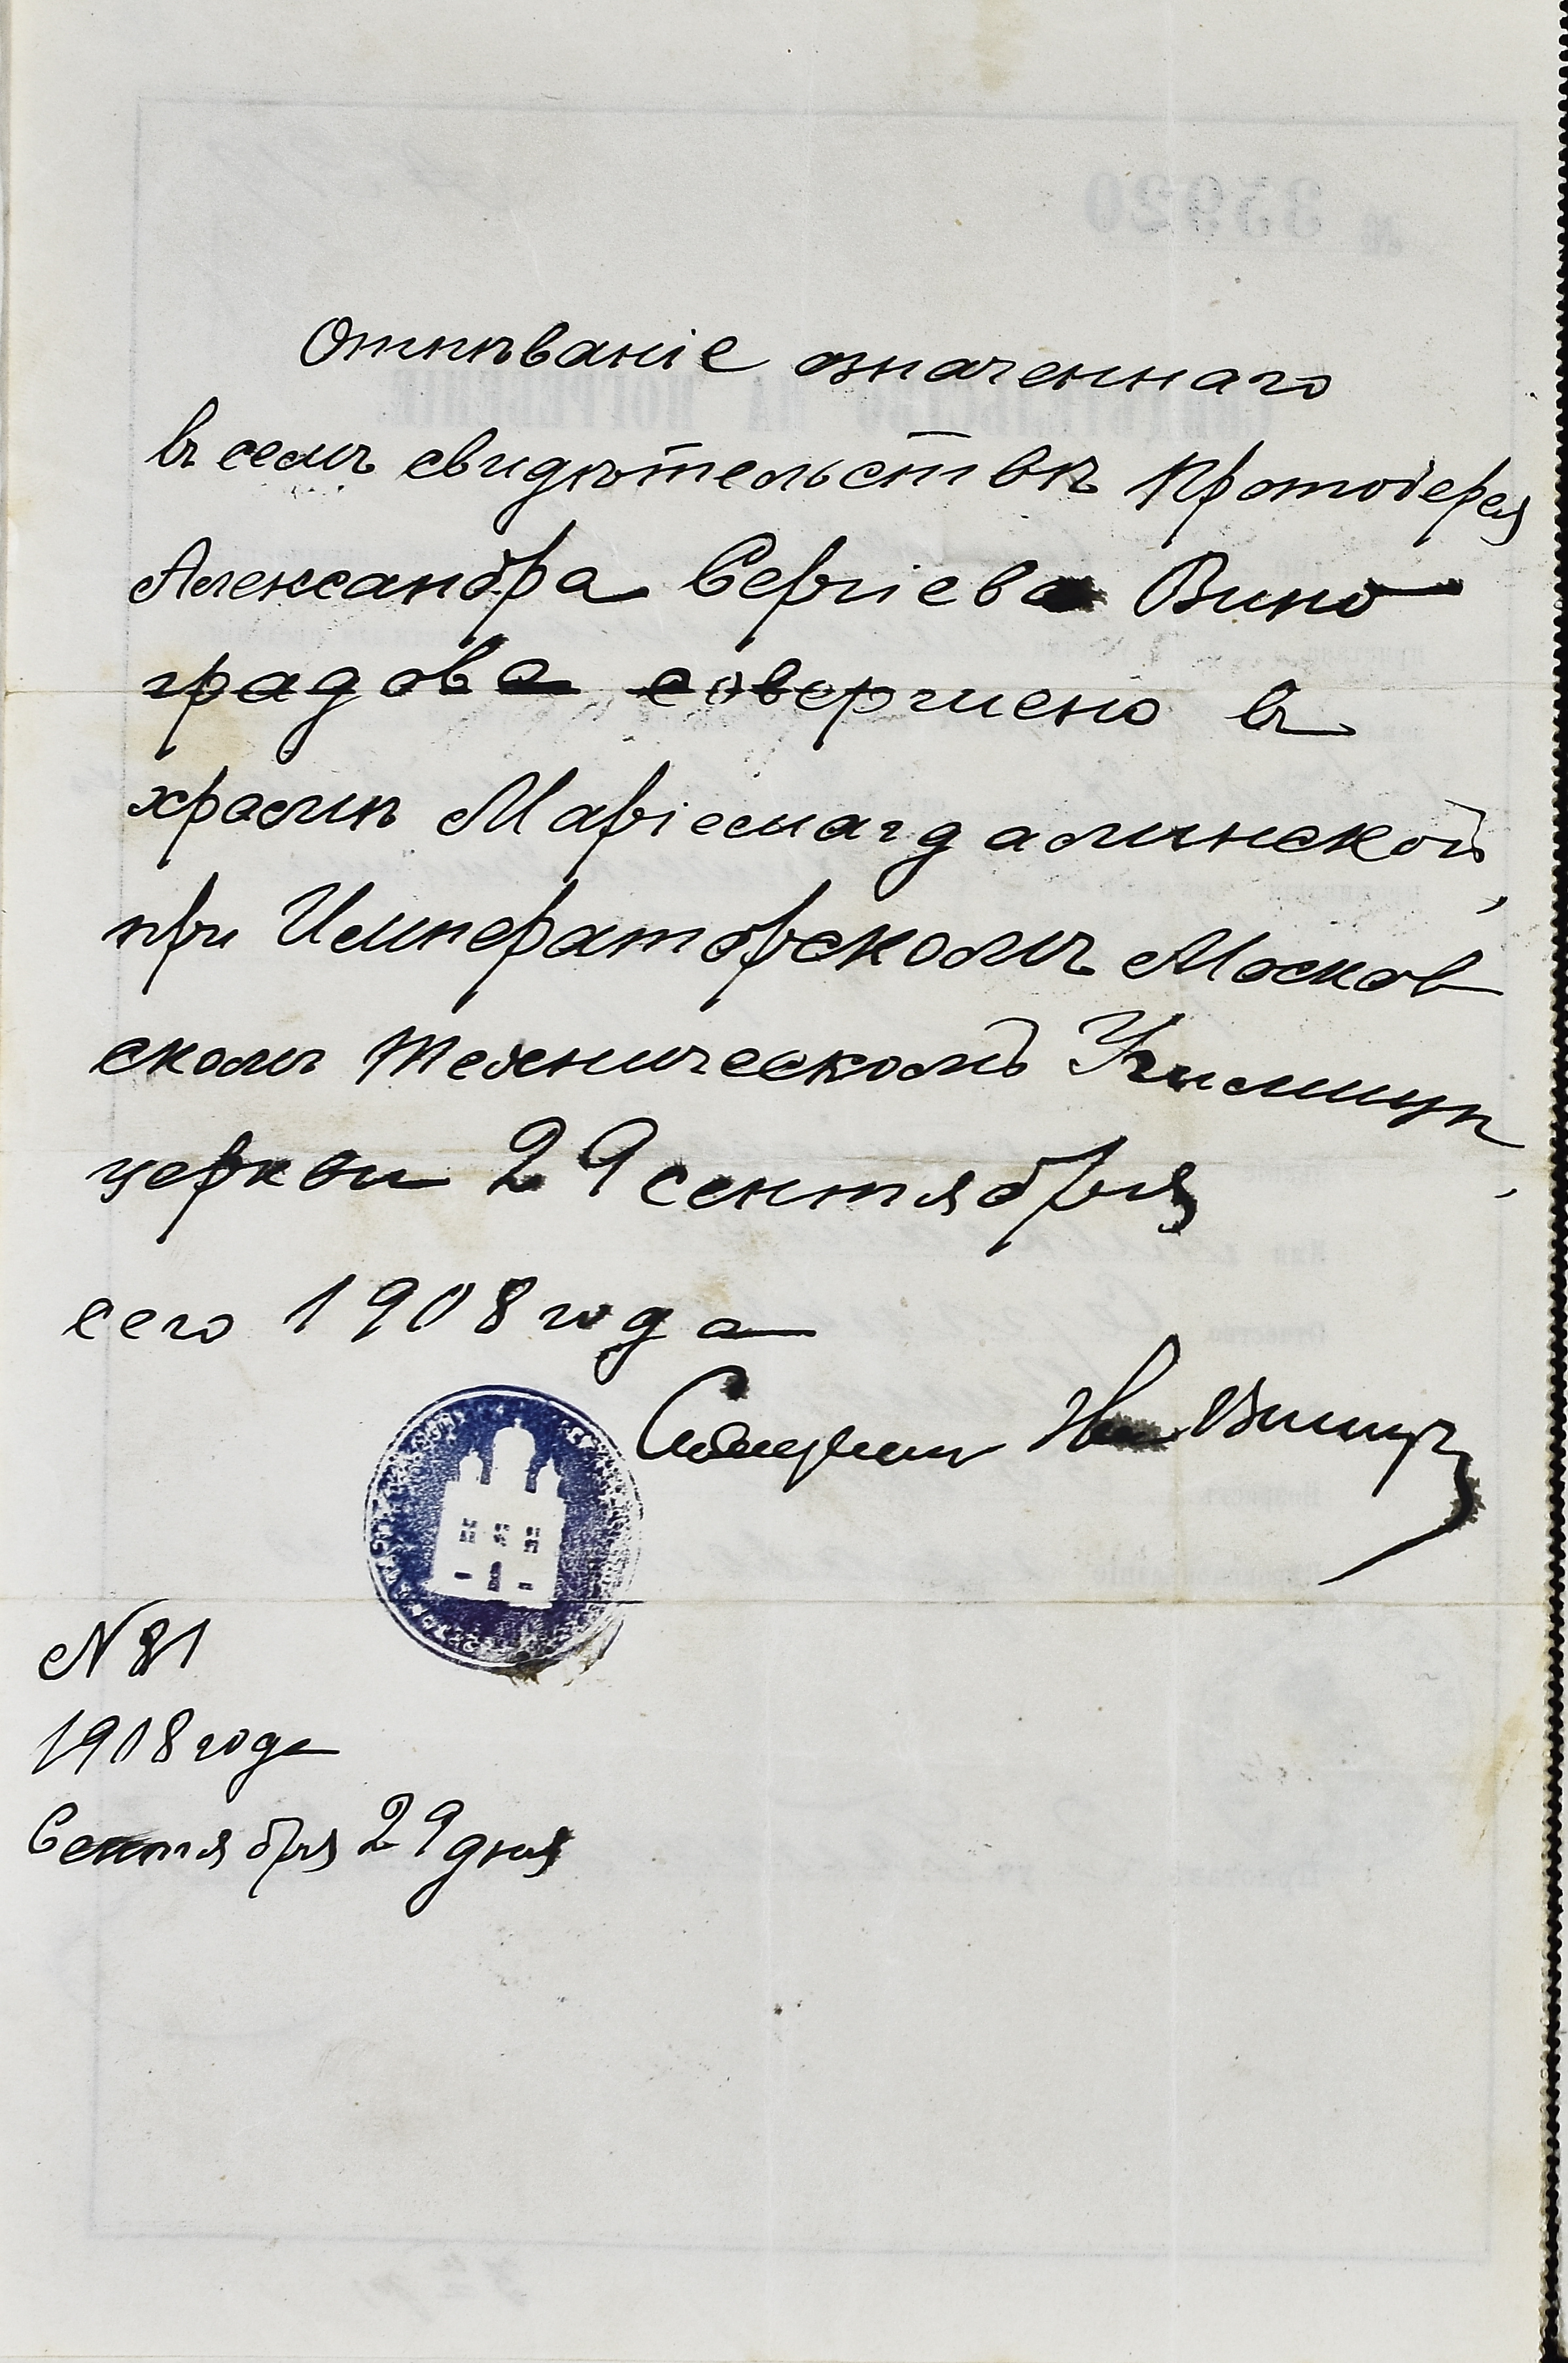 Отпѣваніе означеннаго
въ семъ свидѣтельствѣ Протоіерея
Александра Сергіева Вино
градова совершено въ
храмѣ Маріемагдалинской,
при Императорскомъ Москов
скомъ Техническомъ Училищѣ,
церкви 29 сентября
сего 1908 года
Священникъ
N 81
1908 года
Сентября 29 дня
№ 35920
СВИДѢТЕЛЬСТВО НА ПОГРЕБЕНІЕ